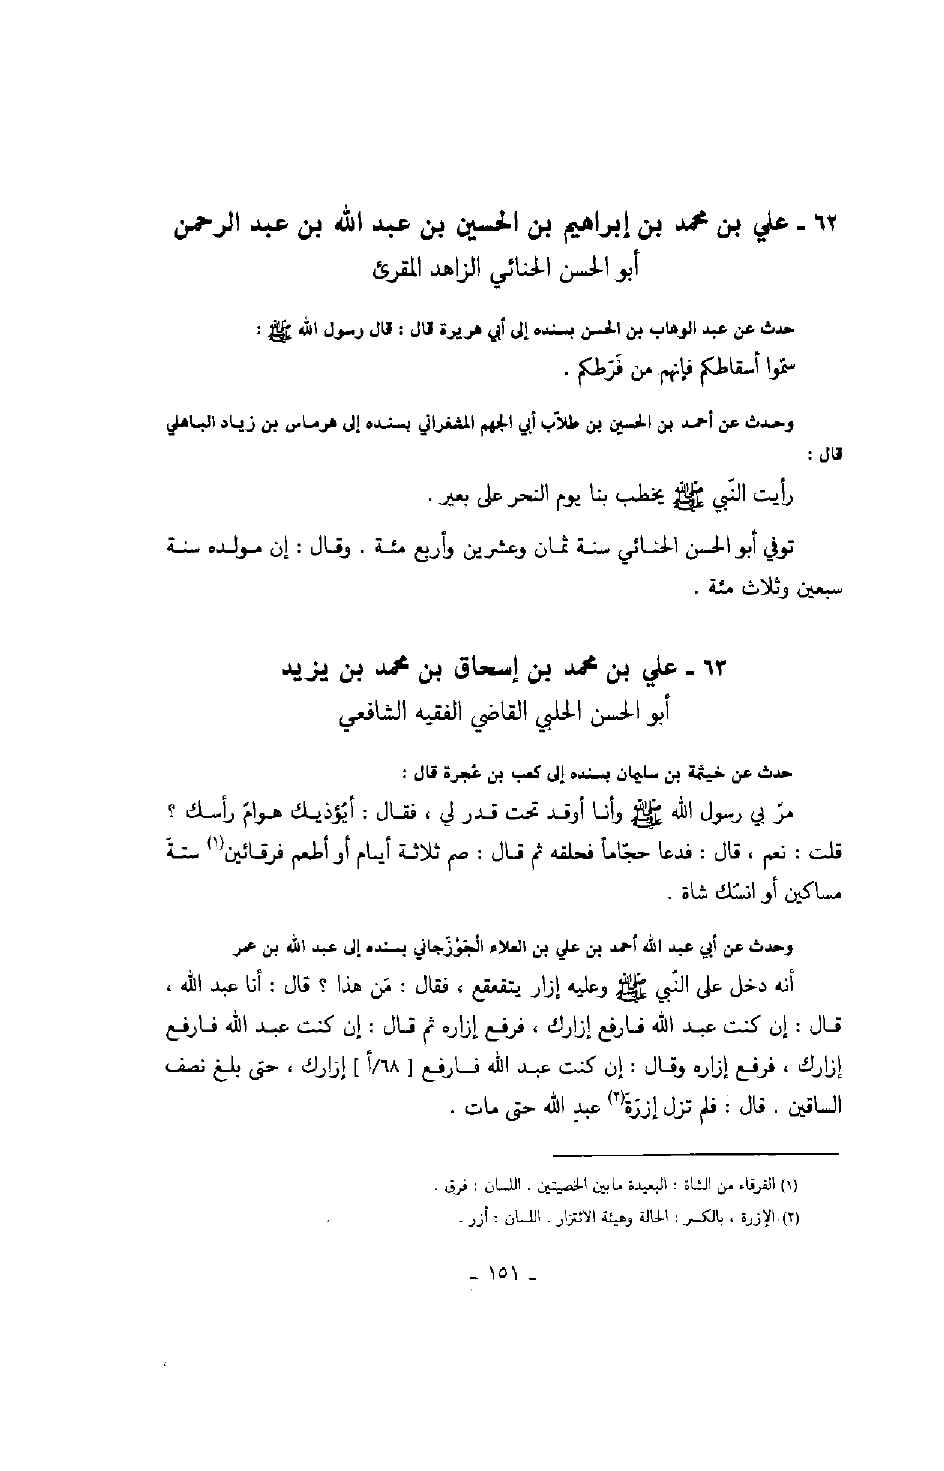 ٦٢ ـ علي بن محمد بن إبراهيم بن الحسين بن عبد الله بن عبد الرحمن
أبو الحسن الحنائي الزاهد المقرئ
حدث عن عبد الوهاب بن الحسن بسنده إلى أبي هريرة قال : قال رسول الله ﷺ :
سمّوا أسقاطكم فإنهم من فَرَطكم .
وحدث عن أحمد بن الحسين بن طلاّب أبي الجهم المشغراني بسنده إلى هرماس بن زياد الباهلي
قال :
رأيت النّبي ﷺ يخطب بنا يوم النحر على بعير .
توفي أبو الحسن الحنائي سنة ثمان وعشرين وأربع مئة . وقال : إن مولده سنة
سبعين وثلاث مئة .
٦٣ ـ علي بن محمد بن إسحاق بن محمد بن يزيد
أبو الحسن الحلبي القاضي الفقيه الشافعي
حدث عن خيثمة بن سليمان بسنده إلى كعب بن عُجرة قال :
مرّ بي رسول الله ﷺ وأنا أوقد تحت قدر لي ، فقال : أيُؤذيك هوامّ رأسك ؟
قلت : نعم ، قال : فدعا حجّاماً فحلقه ثم قال : صم ثلاثة أيام أو أطعم فرقائين(١) ستةَ
مساكين أو انسُك شاة .
وحدث عن أبي عبد الله أحمد بن علي بن العلاء الجَوْزَجاني بسنده إلى عبد الله بن عمر
أنه دخل على النّبي ﷺ وعليه إزار يتقعقع ، فقال : مَن هذا ؟ قال : أنا عبد الله ،
قال : إن كنت عبد الله فارفع إزارك ، فرفع إزاره ثم قال : إن كنت عبد الله فارفع
إزارك ، فرفع إزاره وقال : إن كنت عبد الله فارفع [ ٦٨/أ ] إزارك ، حتى بلغ نصف
الساقين . قال : فلم تزل إزرَة(٢) عبدِ الله حتى مات .
(١) الفرقاء من الشاة : البعيدة مابين الخصيتين . اللسان : فرق .
(٢) الإزرة ، بالكسر : الحالة وهيئة الائتزار . اللسان : أزر .
ـ ١٥١ ـ